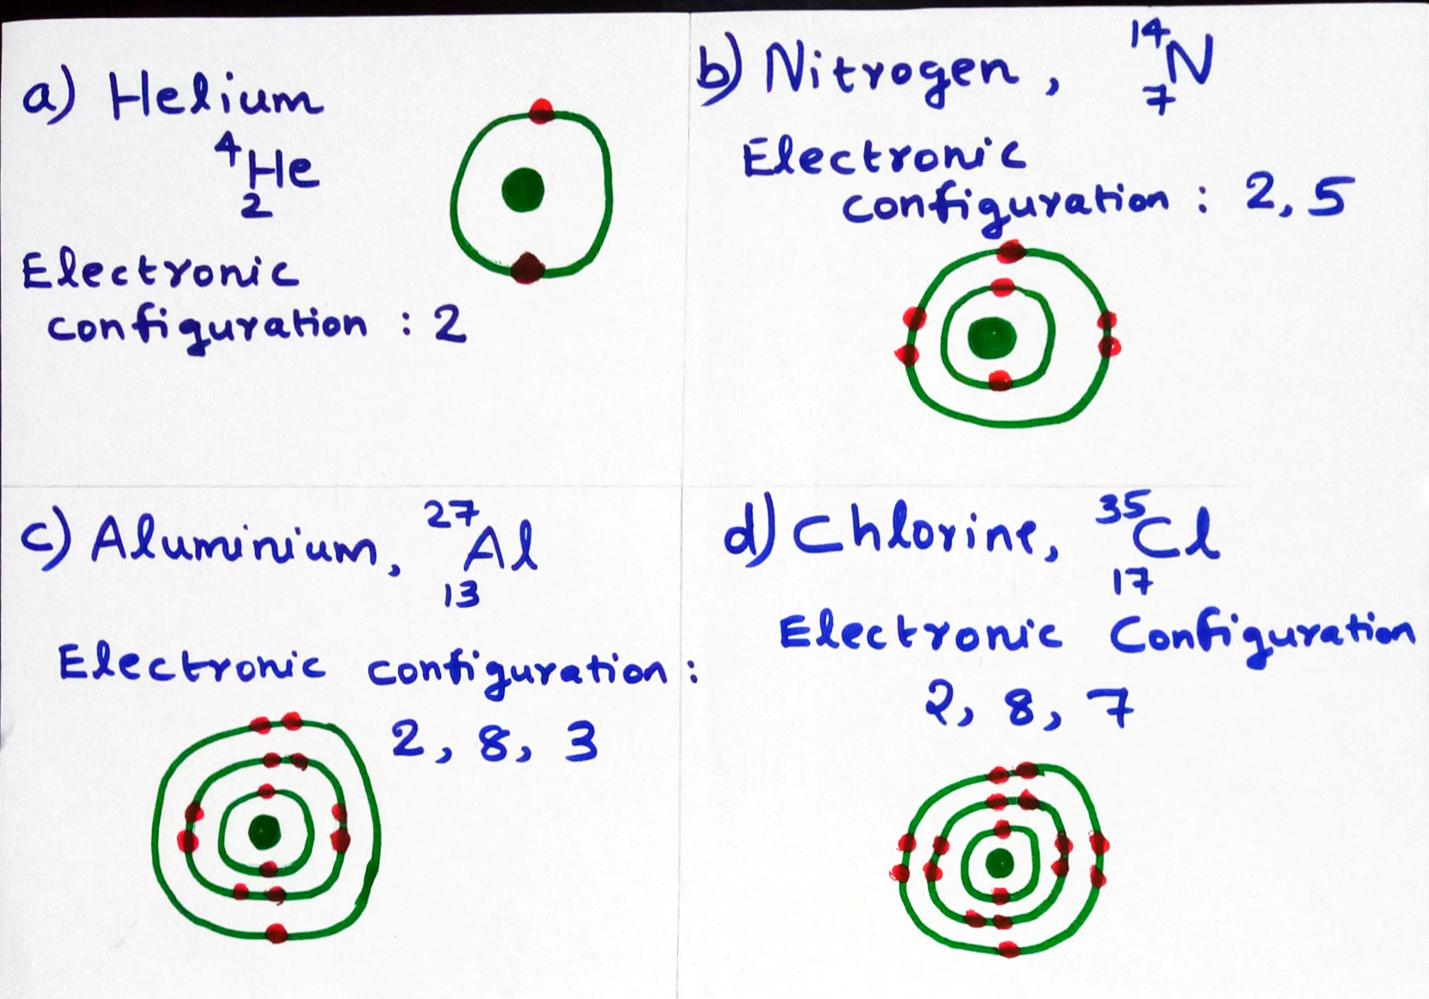 a) Helium
⁴₂He
Electronic
configuration : 2
b) Nitrogen, ¹⁴₇N
Electronic
configuration : 2, 5
c) Aluminium, ²⁷₁₃Al
Electronic configuration :
2, 8, 3
d) Chlorine, ³⁵₁₇Cl
Electronic Configuration
2, 8, 7